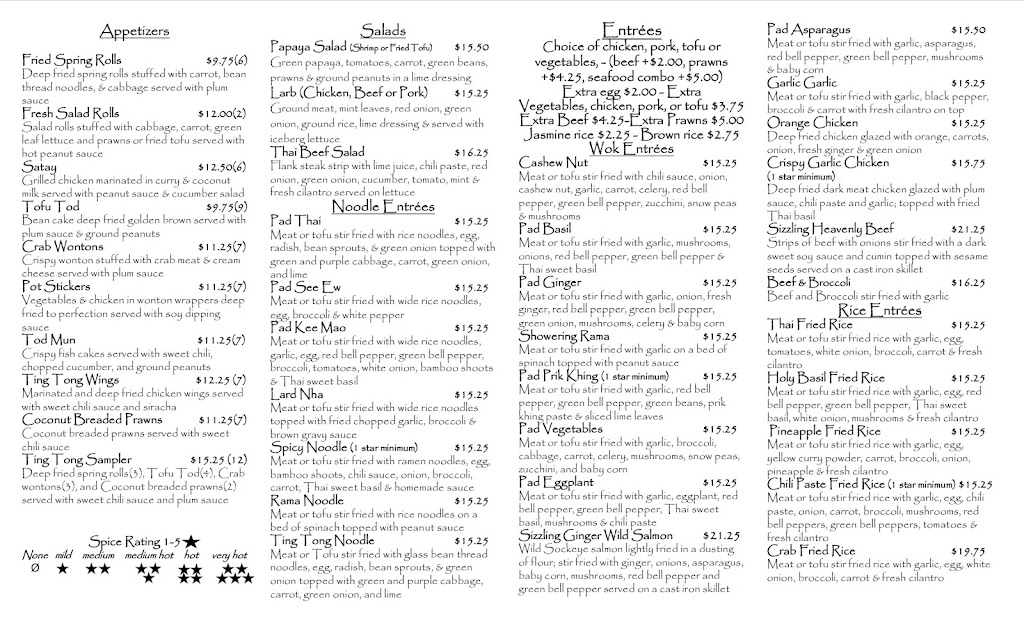 Appetizers
Fried Spring Rolls $9.75(6)
Deep fried spring rolls stuffed with carrot, bean
thread noodles, & cabbage served with plum
sauce
Fresh Salad Rolls $12.00(2)
Salad rolls stuffed with cabbage, carrot, green
leaf lettuce and prawns or fried tofu served with
hot peanut sauce
Satay $12.50(6)
Grilled chicken marinated in curry & coconut
milk served with peanut sauce & cucumber salad
Tofu Tod $9.75(9)
Bean cake deep fried golden brown served with
plum sauce & ground peanuts
Crab Wontons $11.25(7)
Crispy wonton stuffed with crab meat & cream
cheese served with plum sauce
Pot Stickers $11.25(7)
Vegetables & chicken in wonton wrappers deep
fried to perfection served with soy dipping
sauce
Tod Mun $11.25(7)
Crispy fish cakes served with sweet chili,
chopped cucumber, and ground peanuts
Ting Tong Wings $12.25 (7)
Marinated and deep fried chicken wings served
with sweet chili sauce and siracha
Coconut Breaded Prawns $11.25(7)
Coconut breaded prawns served with sweet
chili sauce
Ting Tong Sampler $15.25 (12)
Deep fried spring rolls(3), Tofu Tod(4), Crab
wontons(3), and Coconut breaded prawns(2)
served with sweet chili sauce and plum sauce
Spice Rating 1-5★
None mild medium medium hot hot very hot
Ø ★ ★★ ★★★ ★★★★ ★★★★★
Salads
Papaya Salad (Shrimp or Fried Tofu) $15.50
Green papaya, tomatoes, carrot, green beans,
prawns & ground peanuts in a lime dressing
Larb (Chicken, Beef or Pork) $15.25
Ground meat, mint leaves, red onion, green
onion, ground rice, lime dressing & served with
iceberg lettuce
Thai Beef Salad $16.25
Flank steak strip with lime juice, chili paste, red
onion, green onion, cucumber, tomato, mint &
fresh cilantro served on lettuce
Noodle Entrées
Pad Thai $15.25
Meat or tofu stir fried with rice noodles, egg,
radish, bean sprouts, & green onion topped with
green and purple cabbage, carrot, green onion,
and lime
Pad See Ew $15.25
Meat or tofu stir fried with wide rice noodles,
egg, broccoli & white pepper
Pad Kee Mao $15.25
Meat or tofu stir fried with wide rice noodles,
garlic, egg, red bell pepper, green bell pepper,
broccoli, tomatoes, white onion, bamboo shoots
& Thai sweet basil
Lard Nha $15.25
Meat or tofu stir fried with wide rice noodles
topped with fried chopped garlic, broccoli &
brown gravy sauce
Spicy Noodle (1 star minimum) $15.25
Meat or tofu stir fried with ramen noodles, egg,
bamboo shoots, chili sauce, onion, broccoli,
carrot, Thai sweet basil & homemade sauce
Rama Noodle $15.25
Meat or tofu stir fried with rice noodles on a
bed of spinach topped with peanut sauce
Ting Tong Noodle $15.25
Meat or Tofu stir fried with glass bean thread
noodles, egg, radish, bean sprouts, & green
onion topped with green and purple cabbage,
carrot, green onion, and lime
Entrées
Choice of chicken, pork, tofu or
vegetables, - (beef +$2.00, prawns
+$4.25, seafood combo +$5.00)
Extra egg $2.00 - Extra
Vegetables, chicken, pork, or tofu $3.75
Extra Beef $4.25-Extra Prawns $5.00
Jasmine rice $2.25 - Brown rice $2.75
Wok Entrées
Cashew Nut $15.25
Meat or tofu stir fried with chili sauce, onion,
cashew nut, garlic, carrot, celery, red bell
pepper, green bell pepper, zucchini, snow peas
& mushrooms
Pad Basil $15.25
Meat or tofu stir fried with garlic, mushrooms,
onions, red bell pepper, green bell pepper &
Thai sweet basil
Pad Ginger $15.25
Meat or tofu stir fried with garlic, onion, fresh
ginger, red bell pepper, green bell pepper,
green onion, mushrooms, celery & baby corn
Showering Rama $15.25
Meat or tofu stir fried with garlic on a bed of
spinach topped with peanut sauce
Pad Prik Khing (1 star minimum) $15.25
Meat or tofu stir fried with garlic, red bell
pepper, green bell pepper, green beans, prik
khing paste & sliced lime leaves
Pad Vegetables $15.25
Meat or tofu stir fried with garlic, broccoli,
cabbage, carrot, celery, mushrooms, snow peas,
zucchini, and baby corn
Pad Eggplant $15.25
Meat or tofu stir fried with garlic, eggplant, red
bell pepper, green bell pepper, Thai sweet
basil, mushrooms & chili paste
Sizzling Ginger Wild Salmon $21.25
Wild Sockeye salmon lightly fried in a dusting
of flour; stir fried with ginger, onions, asparagus,
baby corn, mushrooms, red bell pepper and
green bell pepper served on a cast iron skillet
Pad Asparagus $15.50
Meat or tofu stir fried with garlic, asparagus,
red bell pepper, green bell pepper, mushrooms
& baby corn
Garlic Garlic $15.25
Meat or tofu stir fried with garlic, black pepper,
broccoli & carrot with fresh cilantro on top
Orange Chicken $15.25
Deep fried chicken glazed with orange, carrots,
onion, fresh ginger & green onion
Crispy Garlic Chicken $15.75
(1 star minimum)
Deep fried dark meat chicken glazed with plum
sauce, chili paste and garlic; topped with fried
Thai basil
Sizzling Heavenly Beef $21.25
Strips of beef with onions stir fried with a dark
sweet soy sauce and cumin topped with sesame
seeds served on a cast iron skillet
Beef & Broccoli $16.25
Beef and Broccoli stir fried with garlic
Rice Entrées
Thai Fried Rice $15.25
Meat or tofu stir fried rice with garlic, egg,
tomatoes, white onion, broccoli, carrot & fresh
cilantro
Holy Basil Fried Rice $15.25
Meat or tofu stir fried rice with garlic, egg, red
bell pepper, green bell pepper, Thai sweet
basil, white onion, mushrooms & fresh cilantro
Pineapple Fried Rice $15.25
Meat or tofu stir fried rice with garlic, egg,
yellow curry powder, carrot, broccoli, onion,
pineapple & fresh cilantro
Chili Paste Fried Rice (1 star minimum) $15.25
Meat or tofu stir fried rice with garlic, egg, chili
paste, onion, carrot, broccoli, mushrooms, red
bell peppers, green bell peppers, tomatoes &
fresh cilantro
Crab Fried Rice $19.75
Meat or tofu stir fried rice with garlic, egg, white
onion, broccoli, carrot & fresh cilantro